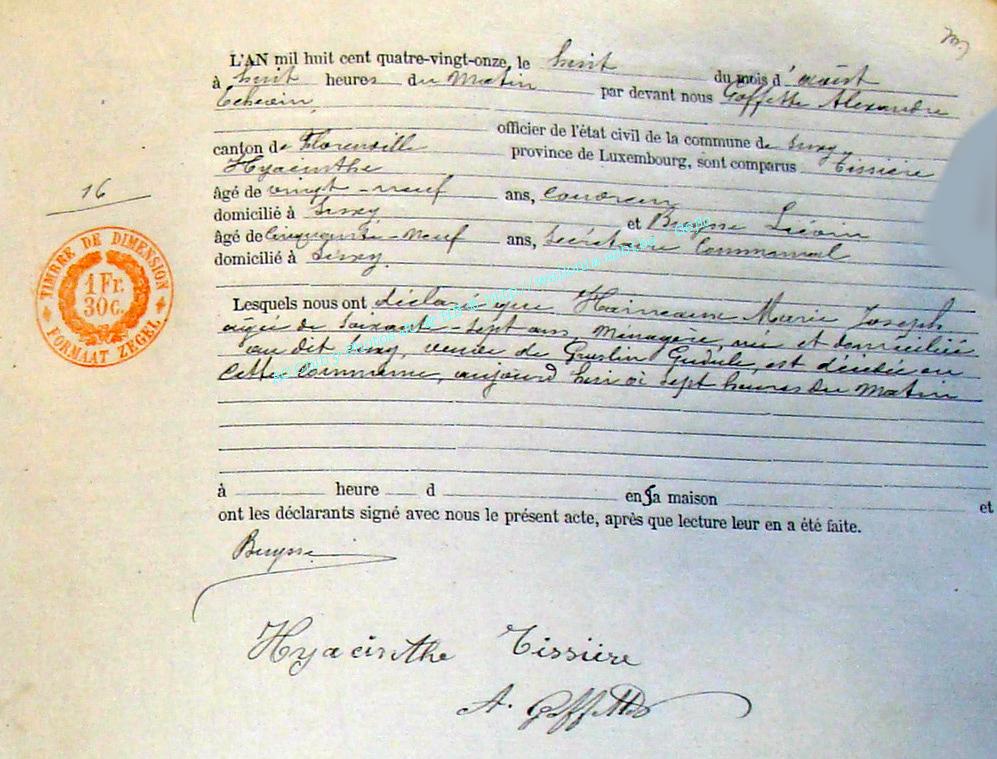 L'AN mil huit cent quatre-vingt-onze, le huit du mois d'août
à huit heures du Matin par devant nous Goffette Alexandre
Echevin,
officier de l'état civil de la commune de Suxy,
canton de Florenville province de Luxembourg, sont comparus Tissière
Hyacinthe
âgé de vingt-neuf ans,
domicilié à Suxy et Buysse
âgé de Cinquante-neuf ans, Secrétaire Communal
domicilié à Suxy.
16
TIMBRE DE DIMENSION
1 Fr.
30 c.
FORMAAT ZEGEL
Lesquels nous ont déclaré que Marie Joseph
agée de Soixante-sept ans, Ménagère, née et domiciliée
au dit Suxy, veuve de est décédée en
cette Commune, aujourd'hui à sept heures du Matin
à heure d en sa maison et
ont les déclarants signé avec nous le présent acte, après que lecture leur en a été faite.
Buysse
Hyacinthe Tissière
A. Goffette